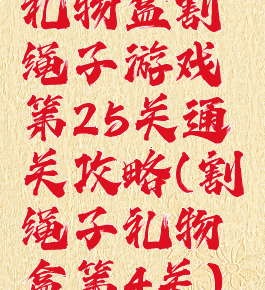 礼物盒割
绳子游戏
第25关通
关攻略(割
绳子礼物
盒第4关)